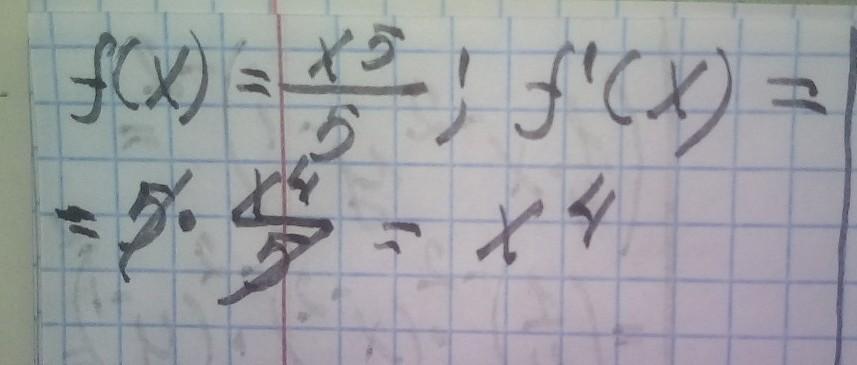 f(x) = x^5/5 ; f'(x) =
= 5 · x^4/5 = x^4